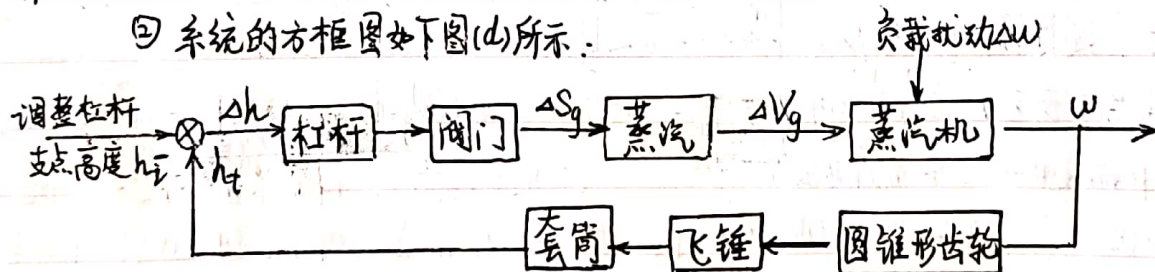 ② 系统的方框图如下图(d)所示:
负载扰动Δω
调整杠杆
支点高度hi
Δh
ht
杠杆
阀门
ΔSg
蒸汽
ΔVg
蒸汽机
ω
套筒
飞锤
圆锥形齿轮